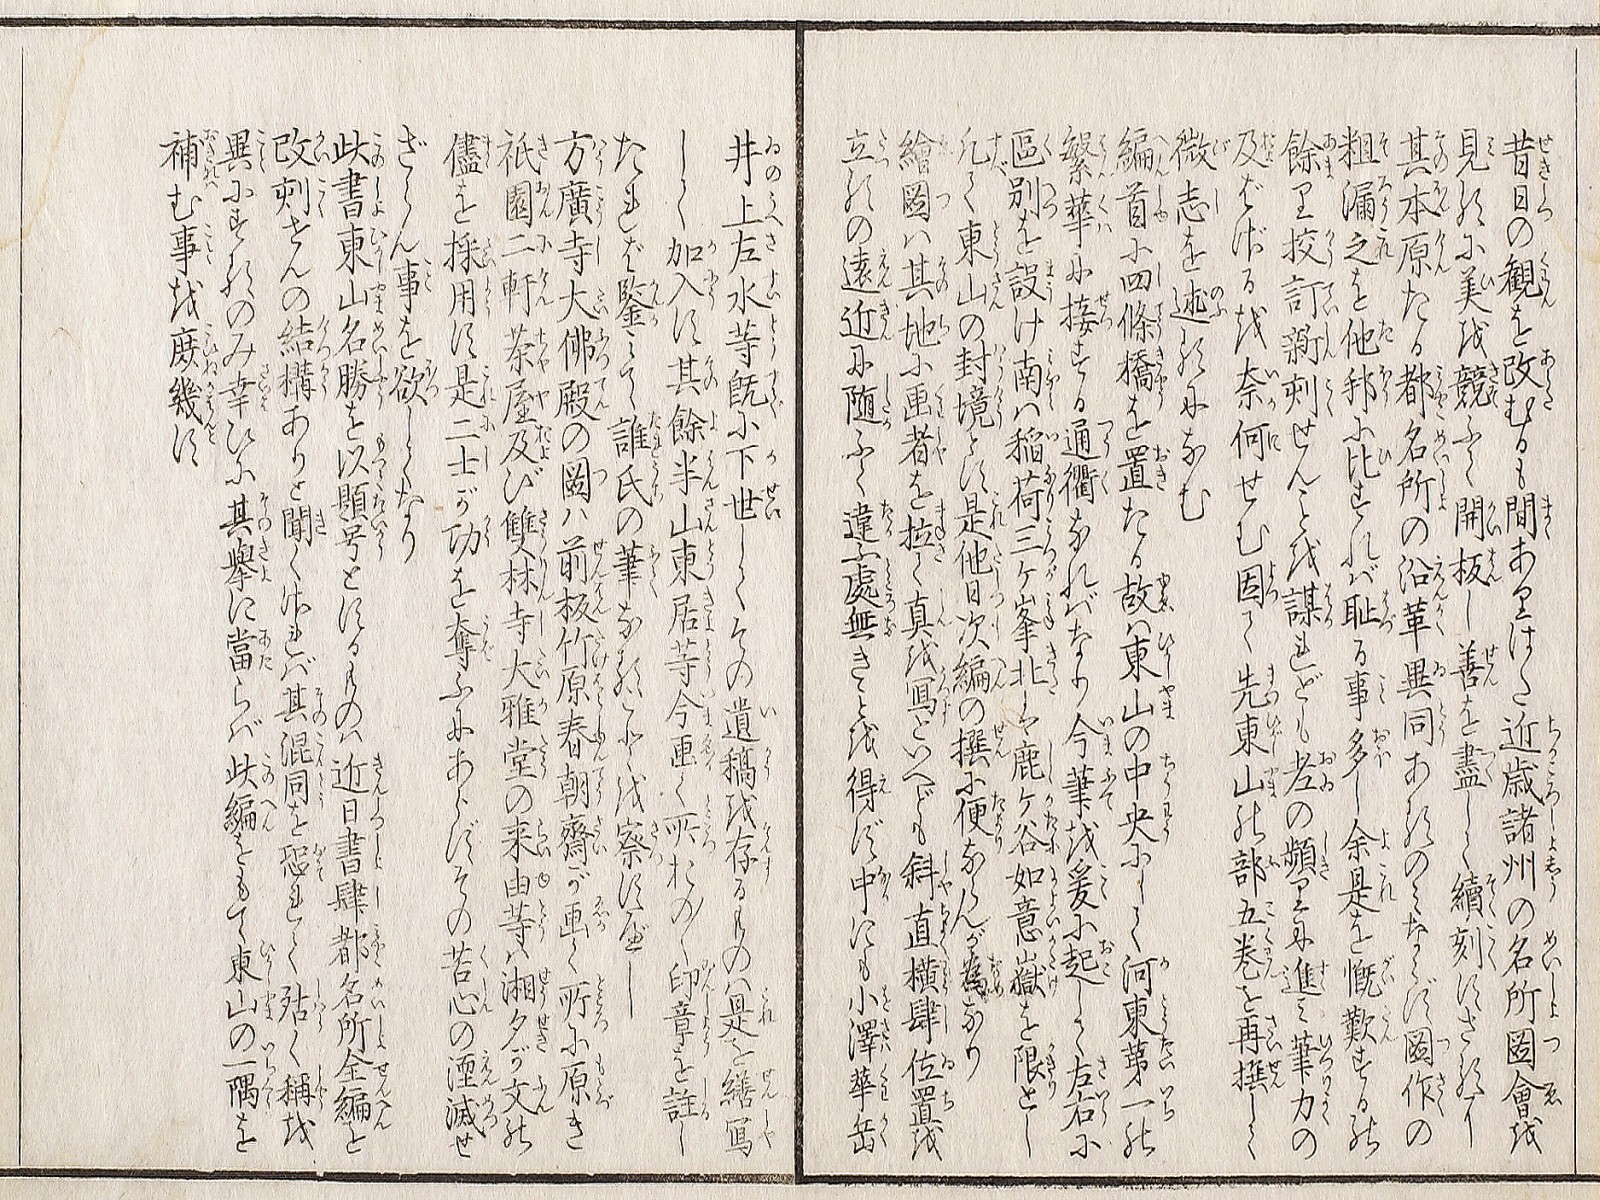 昔日の観を改むるも間あり はた近歳諸州の名所圖會を
見るに美を競ふて開板し善を盡して續刻にさへなりし
其本原たる都名所の沿革異同あるのみならず圖作の
粗漏之を他邦に比すれば耻る事多し余是を慨歎するの
餘り挍訂新刺せんことを謀れども老の頻りに進み筆力の
及ばざるを奈何せむ因て先東山の部五巻を再撰して
微志を述るになむ
編首に四條橋を置たる故は東山の中央にして河東第一の
繁華に接する通衢なればなり今筆を爰に起して左右に
區別を設け南は稲荷三ケ峯北は鹿ケ谷如意嶽を限とし
凡て東山の封境とす是他日次編の撰に便ならんが為なり
繪圖は其地に画者を拉て真を冩といへども斜直横肆位置を
立るの遠近に随ふて違ふ處無きことを得ず中にも小澤華岳
井上左水等既に下世してその遺稿を存るものは是を繕冩
して加入す其餘半山東居等今画く所おの〱印章を註し
たれば鑒て誰氏の筆なることを察すべし
方廣寺大佛殿の圖は前板竹原春朝齋が画く所に原き
祇園二軒茶屋及び雙林寺大雅堂の来由等は湘夕が文の
儘を採用す是二士が功を奪ふにあらずその苦心の湮滅せ
ざらん事を欲してなり
此書東山名勝を以題号とするものは近日書肆都名所全編を
改刺せんの結構ありと聞く然れば其混同を恐れて殆く稱を
異にするのみ幸ひに其擧に當らば此編をもて東山の一隅を
補む事を庶幾す